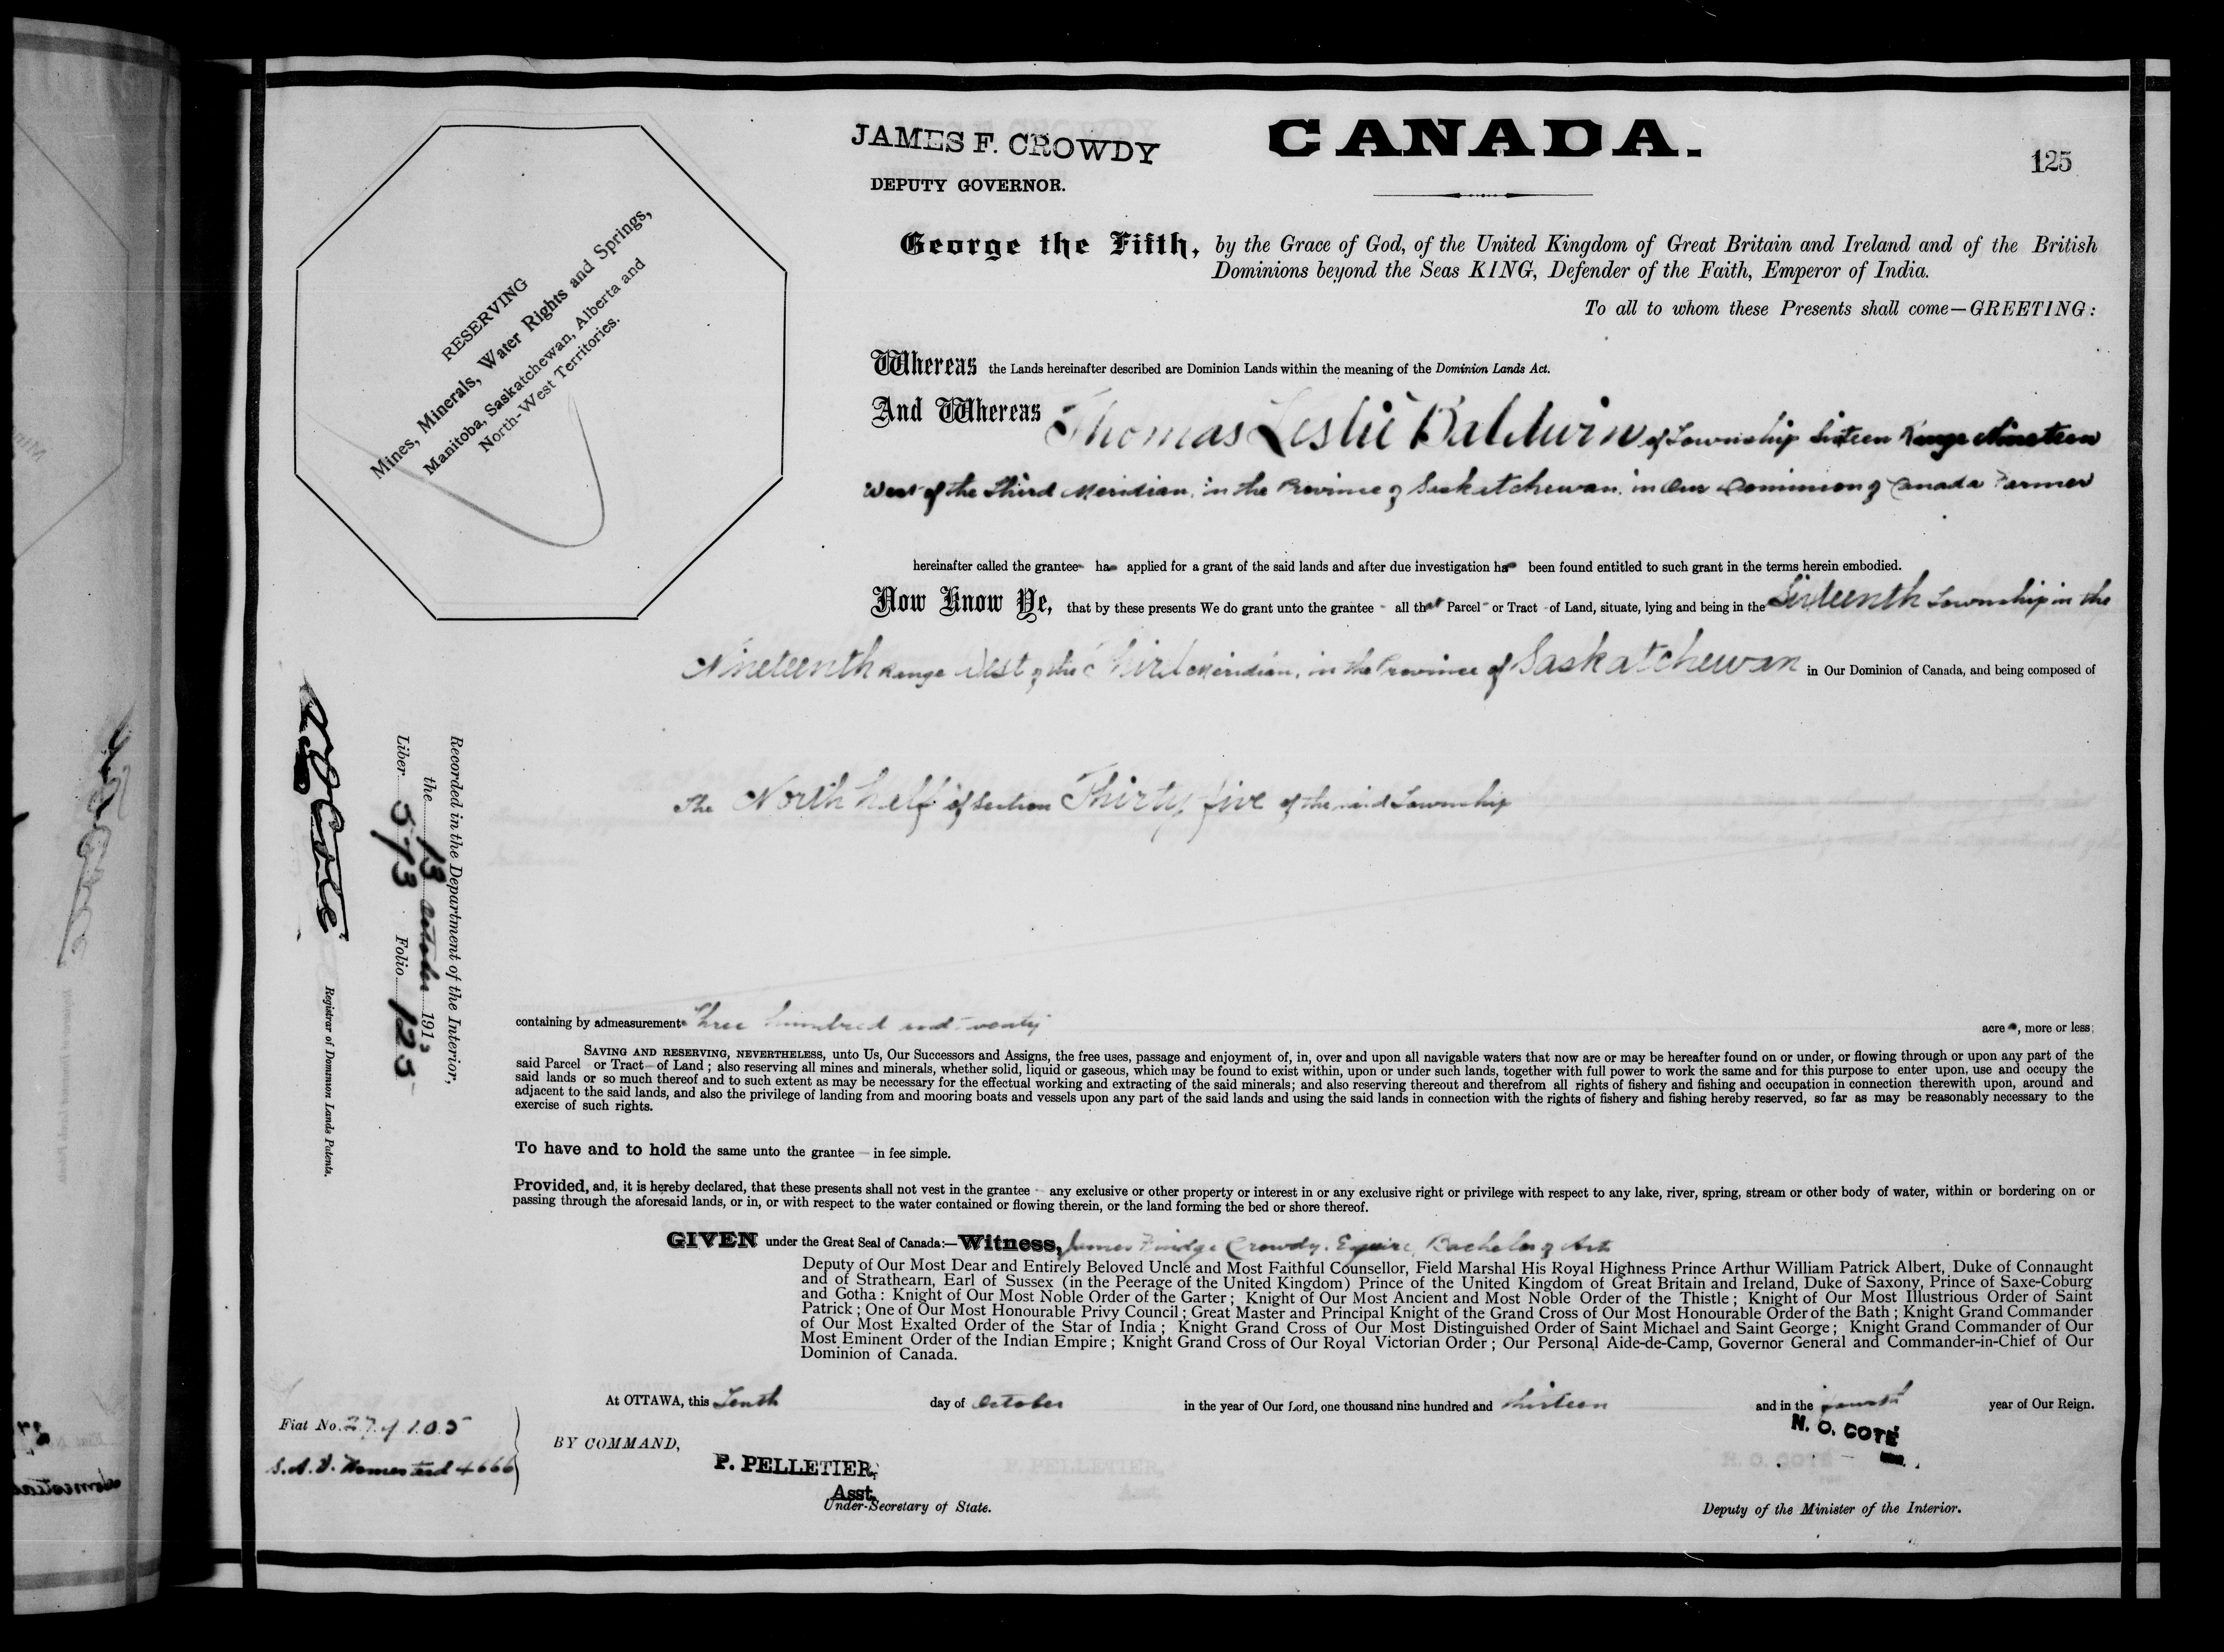 JAMES F. CROWDY
DEPUTY GOVERNOR.
CANADA.
125
RESERVING
Mines, Minerals, Water Rights and Springs,
Manitoba, Saskatchewan, Alberta and
North-West Territories.
George the Fifth, by the Grace of God, of the United Kingdom of Great Britain and Ireland and of the British
Dominions beyond the Seas KING, Defender of the Faith, Emperor of India.
To all to whom these Presents shall come—GREETING:
Whereas the Lands hereinafter described are Dominion Lands within the meaning of the Dominion Lands Act.
And Whereas Thomas Leslie Baldwin of Township Sixteen Range Nineteen
West of the Third Meridian, in the Province of Saskatchewan, in Our Dominion of Canada Farmer
hereinafter called the grantee has applied for a grant of the said lands and after due investigation has been found entitled to such grant in the terms herein embodied.
Now Know Ye, that by these presents We do grant unto the grantee - all that Parcel - or Tract - of Land, situate, lying and being in the Sixteenth Township in the
Nineteenth Range West of the Third Meridian, in the Province of Saskatchewan in Our Dominion of Canada, and being composed of
The North half of Section Thirty five of the said Township
Recorded in the Department of the Interior,
the 13 October 1913
Liber 573 Folio 125
N O Coté
Registrar of Dominion Lands Patents.
containing by admeasurement Three hundred and twenty acres, more or less;
SAVING AND RESERVING, NEVERTHELESS, unto Us, Our Successors and Assigns, the free uses, passage and enjoyment of, in, over and upon all navigable waters that now are or may be hereafter found on or under, or flowing through or upon any part of the
said Parcel or Tract of Land; also reserving all mines and minerals, whether solid, liquid or gaseous, which may be found to exist within, upon or under such lands, together with full power to work the same and for this purpose to enter upon, use and occupy the
said lands or so much thereof and to such extent as may be necessary for the effectual working and extracting of the said minerals; and also reserving thereout and therefrom all rights of fishery and fishing and occupation in connection therewith upon, around and
adjacent to the said lands, and also the privilege of landing from and mooring boats and vessels upon any part of the said lands and using the said lands in connection with the rights of fishery and fishing hereby reserved, so far as may be reasonably necessary to the
exercise of such rights.
To have and to hold the same unto the grantee — in fee simple.
Provided, and, it is hereby declared, that these presents shall not vest in the grantee - any exclusive or other property or interest in or any exclusive right or privilege with respect to any lake, river, spring, stream or other body of water, within or bordering on or
passing through the aforesaid lands, or in, or with respect to the water contained or flowing therein, or the land forming the bed or shore thereof.
GIVEN under the Great Seal of Canada:—Witness, James Crowdy, Esquire, Bachelor of Arts
Deputy of Our Most Dear and Entirely Beloved Uncle and Most Faithful Counsellor, Field Marshal His Royal Highness Prince Arthur William Patrick Albert, Duke of Connaught
and of Strathearn, Earl of Sussex (in the Peerage of the United Kingdom) Prince of the United Kingdom of Great Britain and Ireland, Duke of Saxony, Prince of Saxe-Coburg
and Gotha: Knight of Our Most Noble Order of the Garter; Knight of Our Most Ancient and Most Noble Order of the Thistle; Knight of Our Most Illustrious Order of Saint
Patrick; One of Our Most Honourable Privy Council; Great Master and Principal Knight of the Grand Cross of Our Most Honourable Order of the Bath; Knight Grand Commander
of Our Most Exalted Order of the Star of India; Knight Grand Cross of Our Most Distinguished Order of Saint Michael and Saint George; Knight Grand Commander of Our
Most Eminent Order of the Indian Empire; Knight Grand Cross of Our Royal Victorian Order; Our Personal Aide-de-Camp, Governor General and Commander-in-Chief of Our
Dominion of Canada.
At OTTAWA, this Tenth day of October in the year of Our Lord, one thousand nine hundred and thirteen and in the fourth year of Our Reign.
Fiat No. 279105
S.A.V. Homestead 4666
BY COMMAND,
P. PELLETIER,
Asst.
Under-Secretary of State.
N. O. COTÉ
Deputy of the Minister of the Interior.